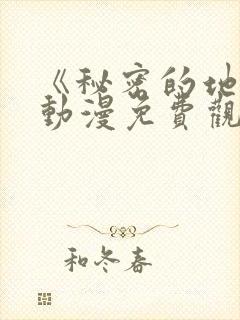 《秘密的地
動漫免費觀
和冬春